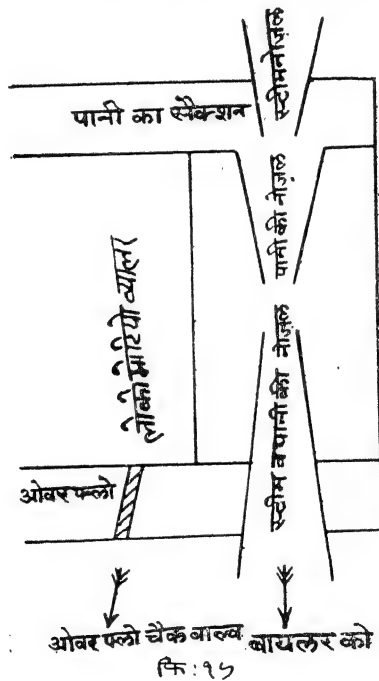 स्टीमनोज़ल
पानी का सैक्शन
पानी की नोज़ल
लोको मोटियो व्यालर
स्टीम व पानी की नोज़ल
ओवर फ्लो
ओवर फ्लो चैक वाल्व
बायलर को
फि: १५